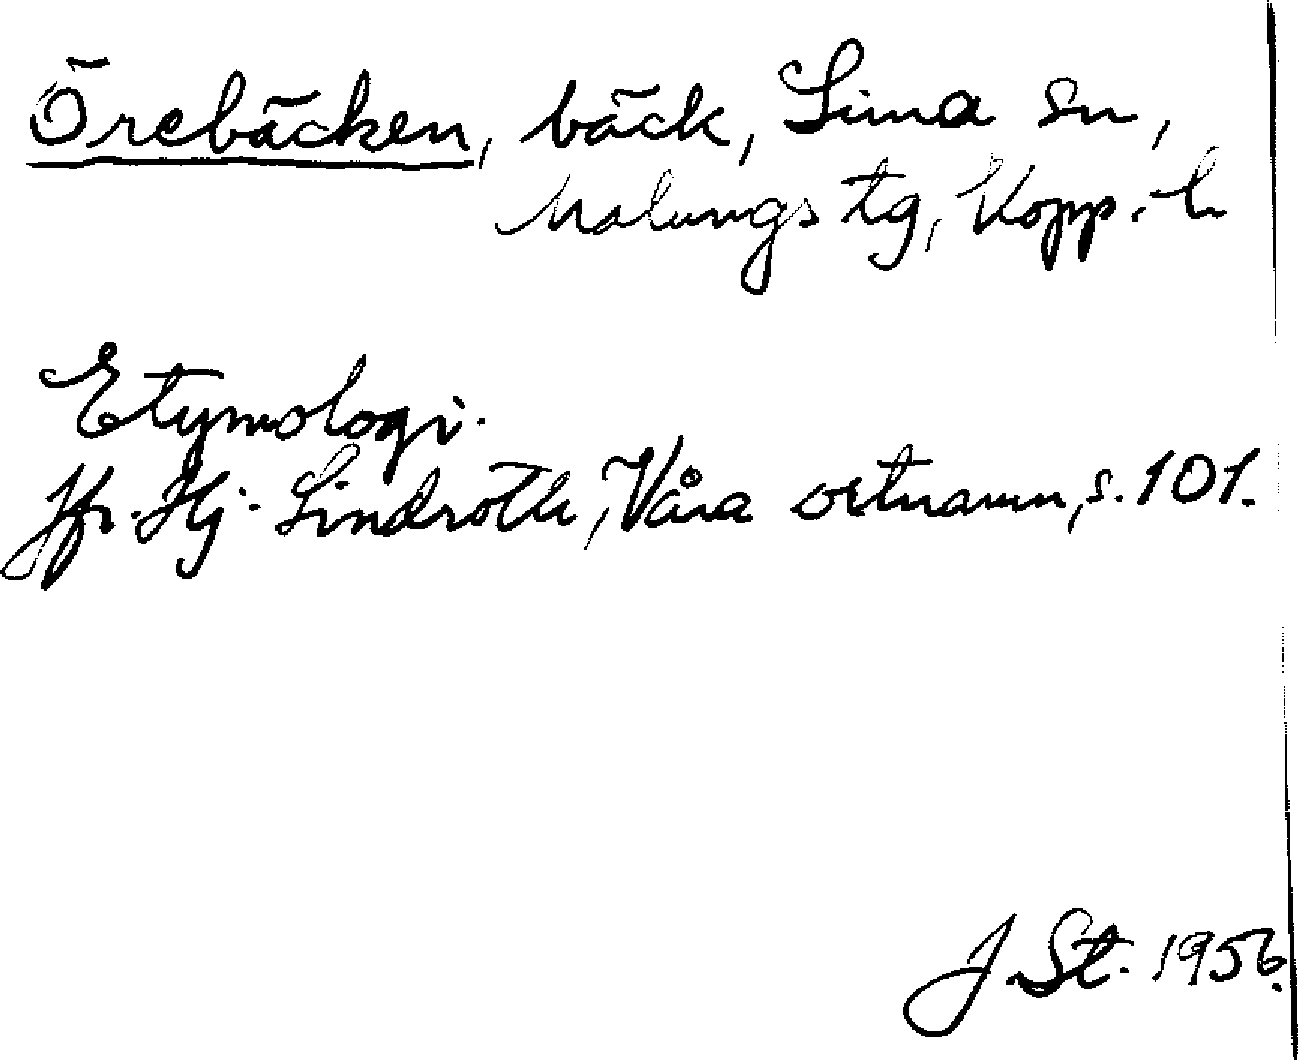 Örebäcken, bäck, Lima sn,
Malungs tg, Kopp. l.
Etymologi.
Jfr. Hj. Lindroth, Våra ortnamn, s. 101.
J. St. 1956.